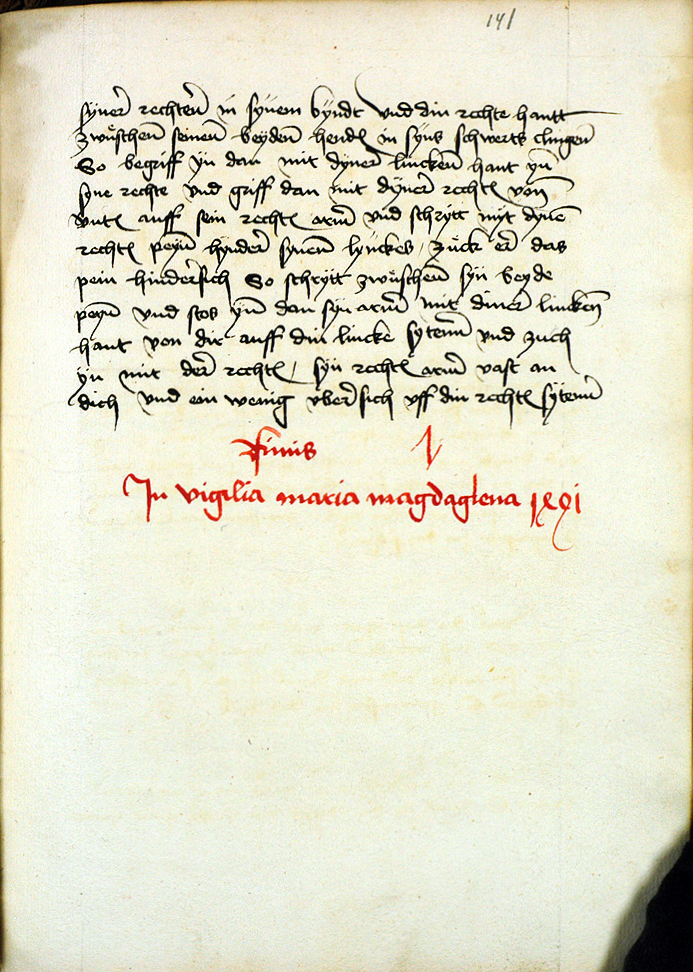 141
syner rechten in synem bÿndt vnd din rechte hantt
zwüschen seinen beyden hend in syns schwerts clingen
So begriff ÿn dan mit dyner lincken hant yn
syne rechte vnd griff dan mit dyner recht von
vnt auff sein recht arm vnd schrytt mit dynē
recht peyn hynder synen lynckes / zuck er das
pein hindersich So schrytt zwüschen syn beyde
peyn vnd stos yn dan syn arm mit diner lincken
hant von dir auff din lincke syten vnd zuch
yn mit der recht / syn recht arm vast an
dich vnd ein wenig vbersich vff din recht syten
Finis
In vigilia maria magdaglena lxxxi